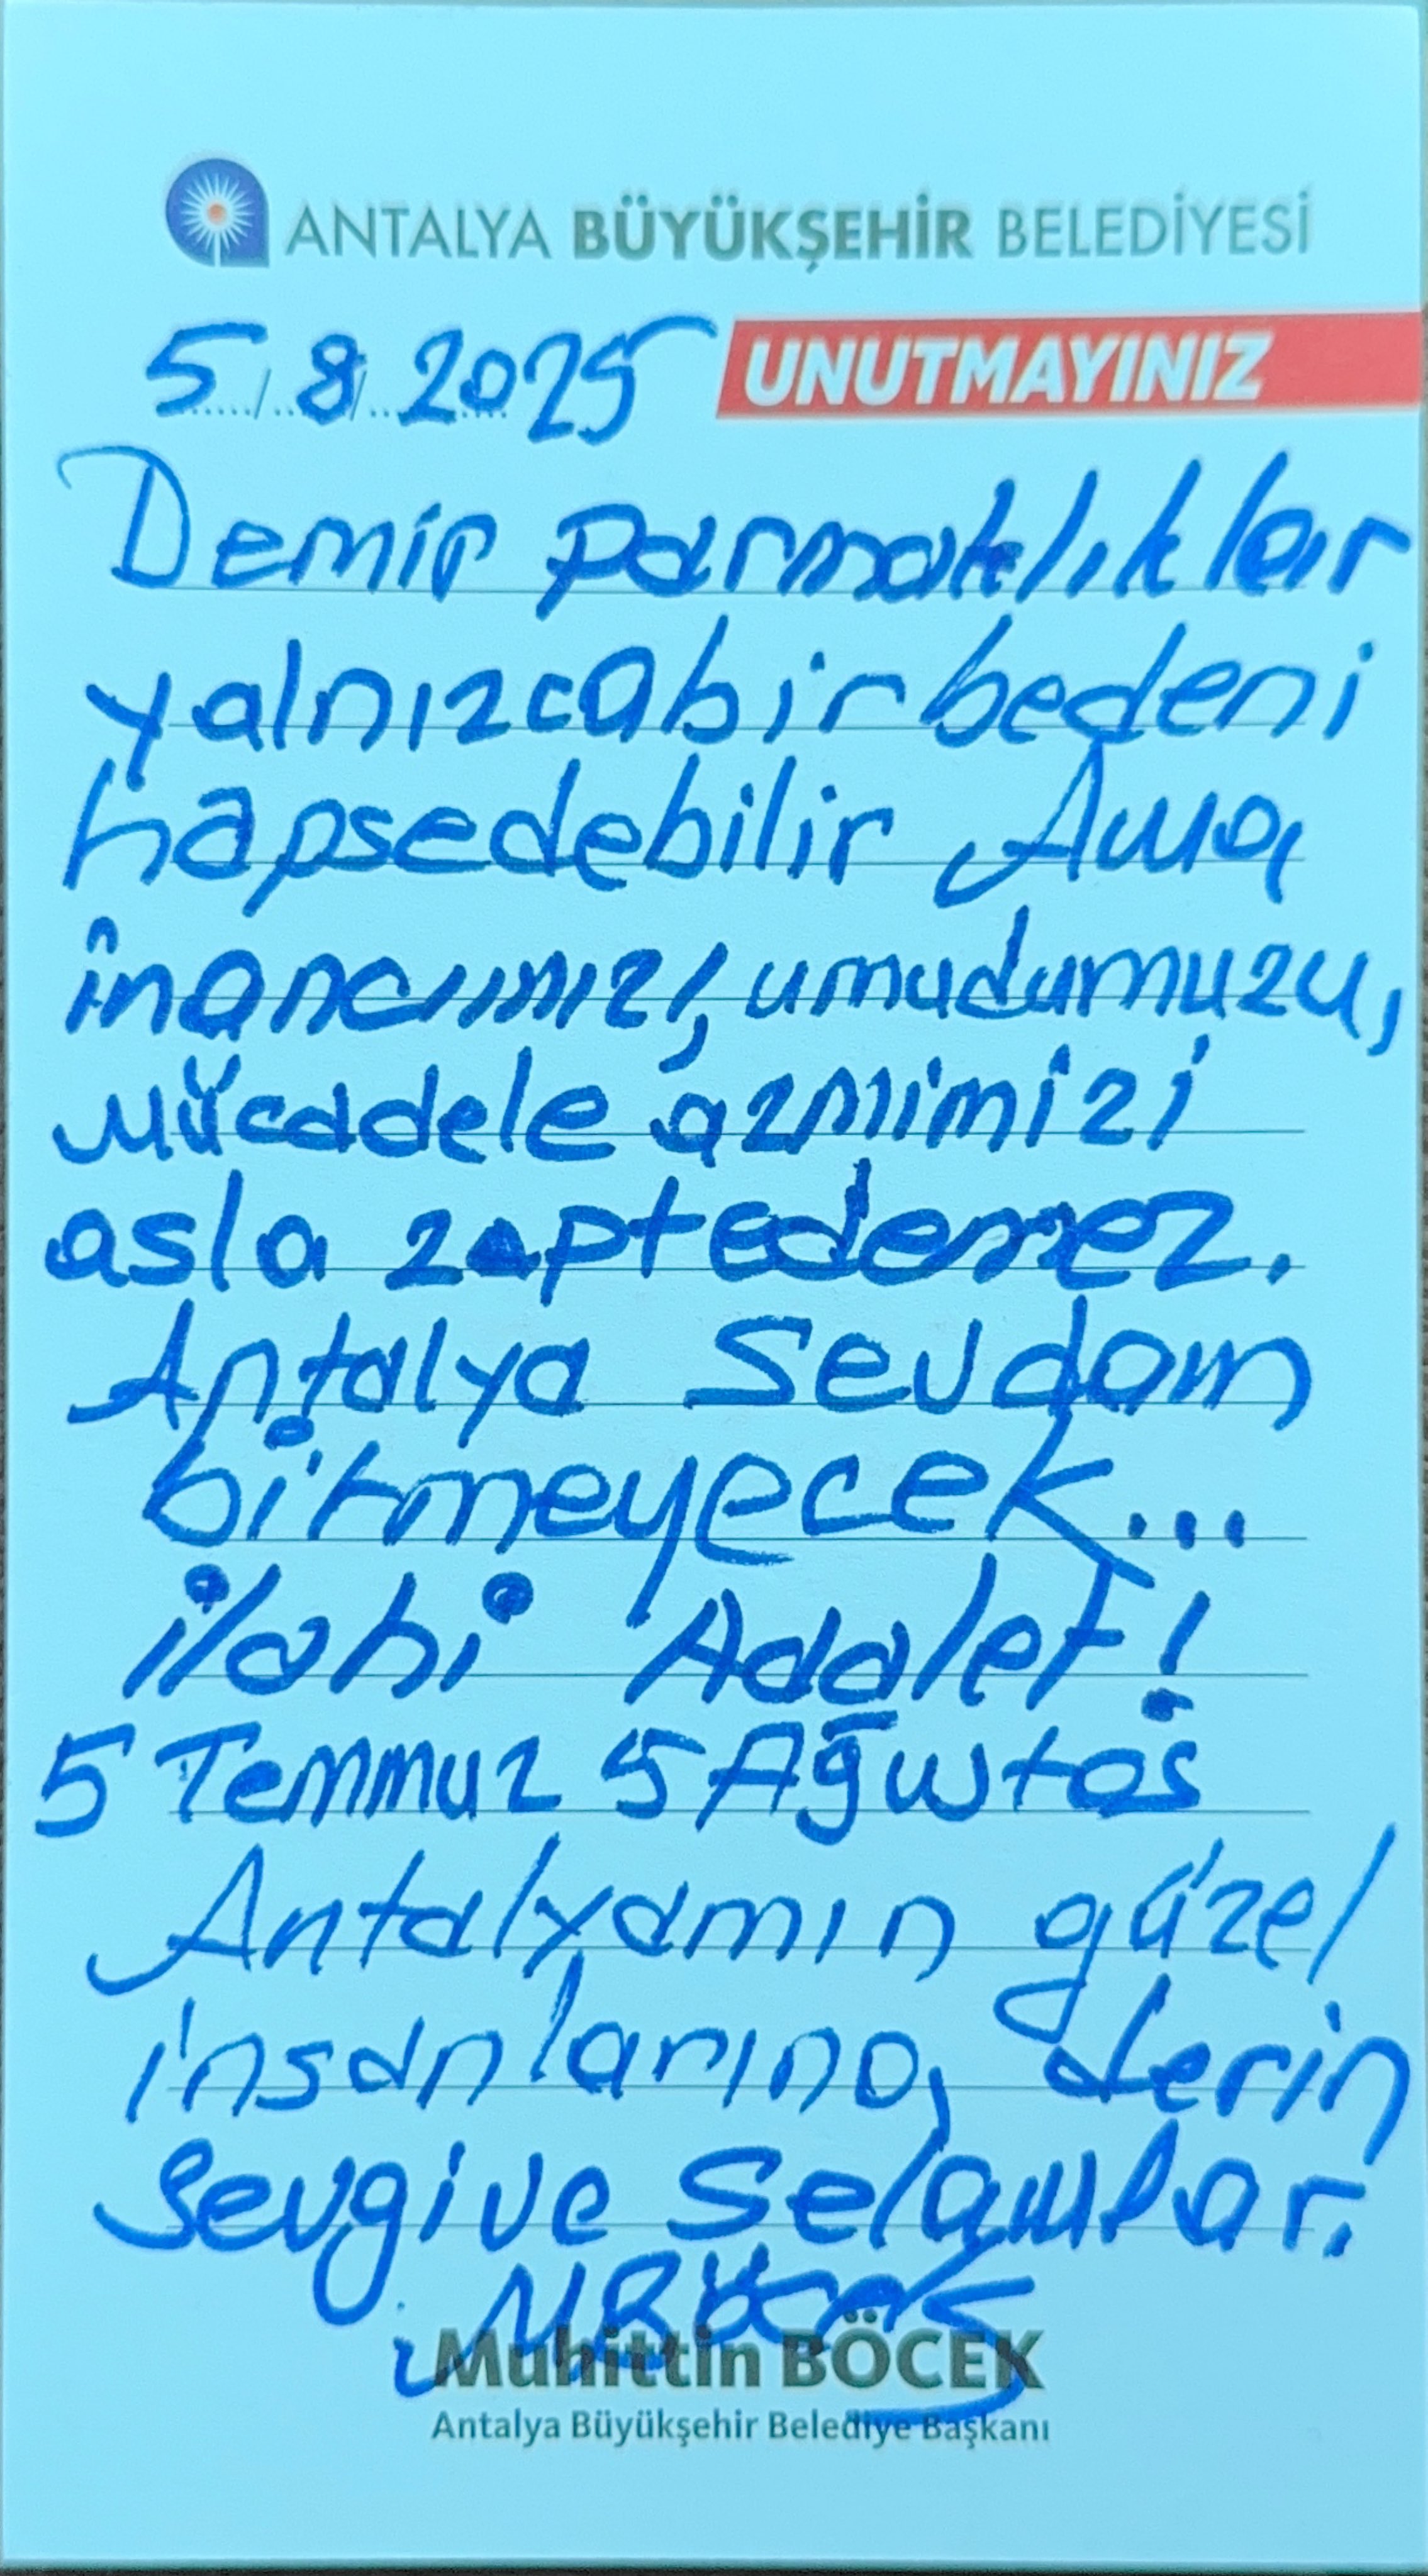 ANTALYA BÜYÜKŞEHİR BELEDİYESİ
5/8/2025 UNUTMAYINIZ
Demir parmaklıklar
yalnızca bir bedeni
hapsedebilir Ama
inancımızı, umudumuzu,
mücadele azmimizi
asla zaptedemez.
Antalya Sevdam
bitmeyecek...
ilahi Adalet!
5 Temmuz 5 Ağustos
Antalyamın güzel
insanlarına derin
Sevgi ve Selamlar.
MBöcek
Muhittin BÖCEK
Antalya Büyükşehir Belediye Başkanı